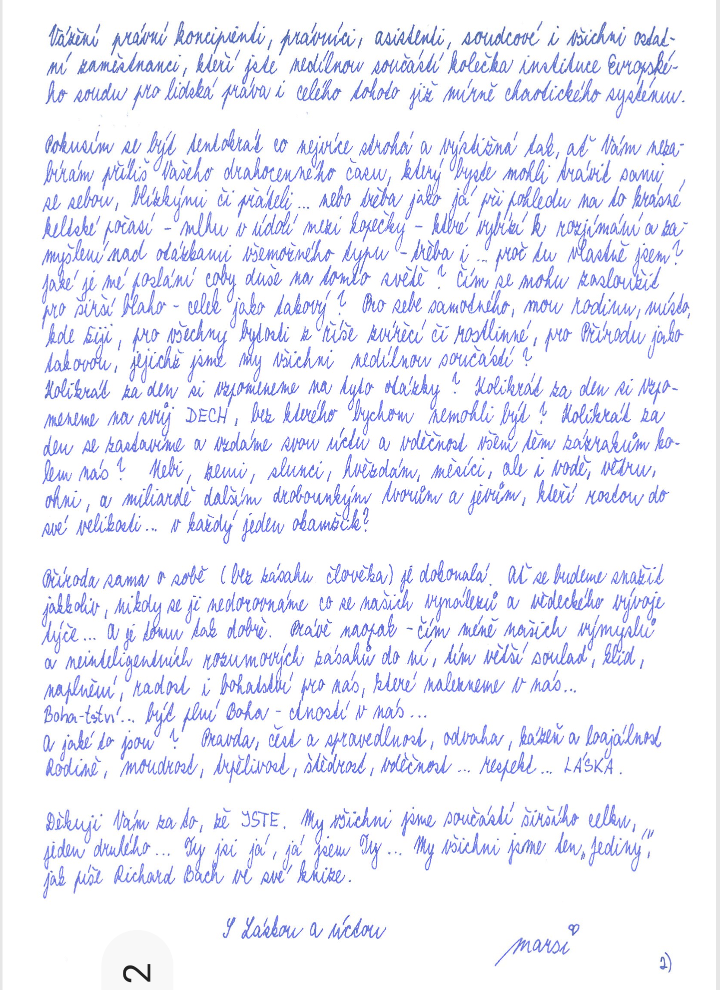 Vážení právní koncipienti, právníci, asistenti, soudcové i všichni ostat-
ní zaměstnanci, kteří jste nedílnou součástí kolečka instituce Evropské-
ho soudu pro lidská práva i celého tohoto již mírně chaotického systému.
Pokusím se být tentokrát co nejvíce strohá a výstižná tak, ať Vám neza-
bírám příliš Vašeho drahocenného času, který byste mohli trávit sami
se sebou, blízkými či přáteli... nebo třeba jako já při pohledu na to krásné
keltské počasí - mlhu v údolí mezi kopečky - které vybízí k rozjímání a za-
myšlení nad otázkami všemožného typu - třeba i ... proč tu vlastně jsem?
Jaké je mé poslání coby duše na tomto světě? Čím se mohu zasloužit
pro širší blaho - celek jako takový? Pro sebe samotného, mou rodinu, místo,
kde žiji, pro všechny bytosti z říše zvířecí či rostlinné, pro Přírodu jako
takovou, jejichž jsme my všichni nedílnou součástí?
Kolikrát za den si vzpomeneme na tyto otázky? Kolikrát za den si vzpo-
meneme na svůj DECH, bez kterého bychom nemohli být? Kolikrát za
den se zastavíme a vzdáme svou úctu a vděčnost všem těm zázrakům ko-
lem nás? Nebi, zemi, slunci, hvězdám, měsíci, ale i vodě, větru,
ohni, a miliardě dalším drobounkým tvorům a jevům, kteří rostou do
své velikosti... v každý jeden okamžik?
Příroda sama o sobě (bez zásahu člověka) je dokonalá. Ať se budeme snažit
jakkoliv, nikdy se jí nedorovnáme co se našich vynálezů a vědeckého vývoje
týče... A je tomu tak dobře. Právě naopak - čím méně našich výmyslů
a neinteligentních rozumových zásahů do ní, tím větší soulad, klid,
naplnění, radost i bohatství pro nás, které nalezneme v nás...
Boha-tství... být plní Boha - ctností v nás...
A jaké to jsou? Pravda, čest a spravedlnost, odvaha, kázeň a loajálnost
Rodině, moudrost, trpělivost, štědrost, vděčnost... respekt... LÁSKA.
Děkuji Vám za to, že JSTE. My všichni jsme součástí širšího celku,
jeden druhého... Ty jsi já, já jsem Ty... My všichni jsme ten „Jediný",
jak píše Richard Bach ve své knize.
S Láskou a úctou
marsi
2)
2